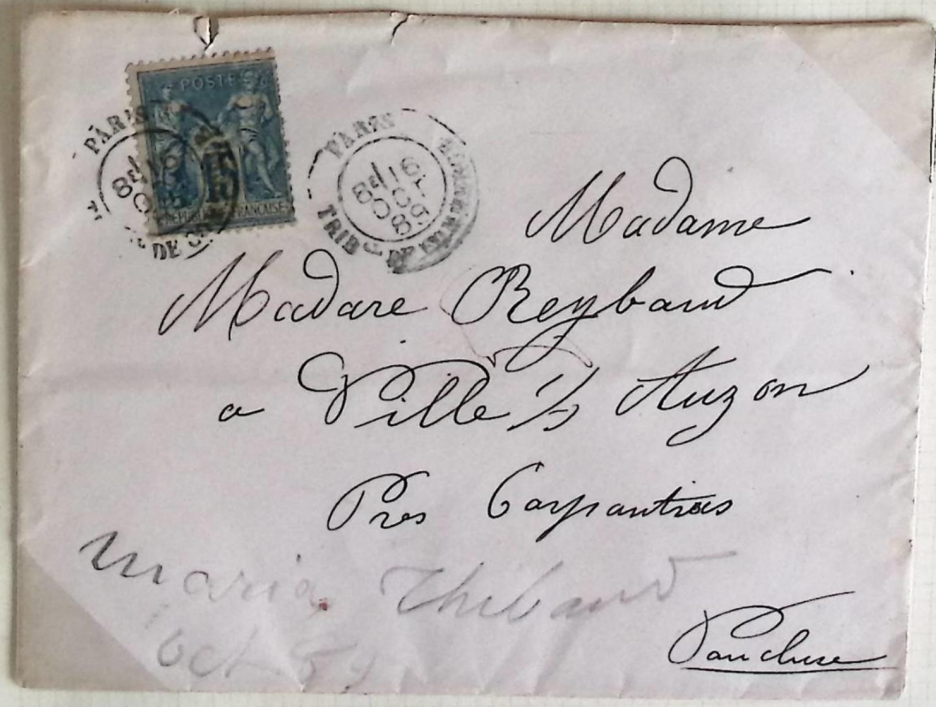 POSTES
15
REPUBLIQUE FRANÇAISE
PARIS
PARIS
16
OCT
89
TRIB. DE COMMERCE
Madame
Madare Reybaud
a Ville s/ Auzon
Pres Carpantras
maria Thibaud
oct 89
Vaucluse